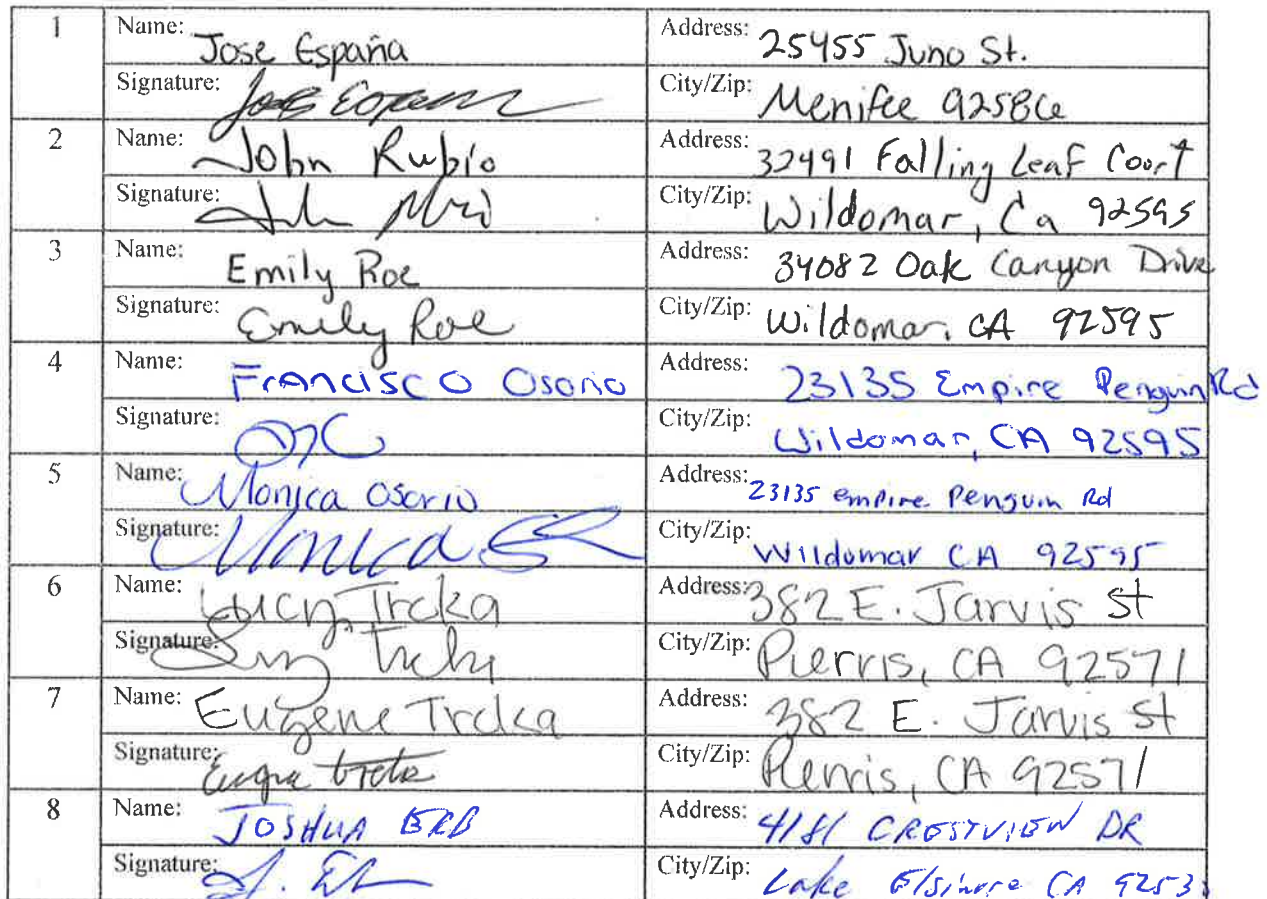 1 Name: Jose España Address: 25455 Juno St.
Signature: City/Zip: Menifee 92586
2 Name: John Rubio Address: 32491 Falling Leaf Court
Signature: City/Zip: Wildomar, Ca 92595
3 Name: Emily Roe Address: 34082 Oak Canyon Drive
Signature: Emily Roe City/Zip: Wildomar, CA 92595
4 Name: Francisco Osorio Address: 23135 Empire Penguin Rd
Signature: City/Zip: Wildomar, CA 92595
5 Name: Monica Osorio Address: 23135 empire Penguin Rd
Signature: Monica City/Zip: Wildomar CA 92595
6 Name: Lucy Trcka Address: 382 E. Jarvis St
Signature: City/Zip: Perris, CA 92571
7 Name: Eugene Trcka Address: 382 E. Jarvis St
Signature: City/Zip: Perris, CA 92571
8 Name: JOSHUA ERB Address: 4181 CRESTVIEW DR
Signature: City/Zip: Lake Elsinore CA